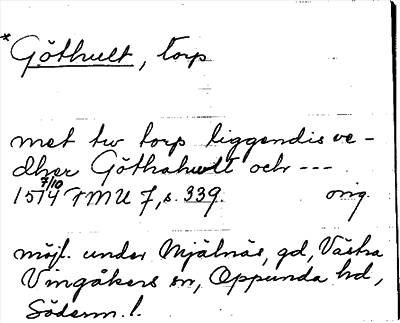 * Göthult, torp
met tw torp liggendis ve-
dher Göthahwlt och ---
15 7/10 14 FMU 7, s. 339. orig.
möjl. under Mjälnäs, gd, Västra
Vingåkers sn, Oppunda hd,
Söderm. l.